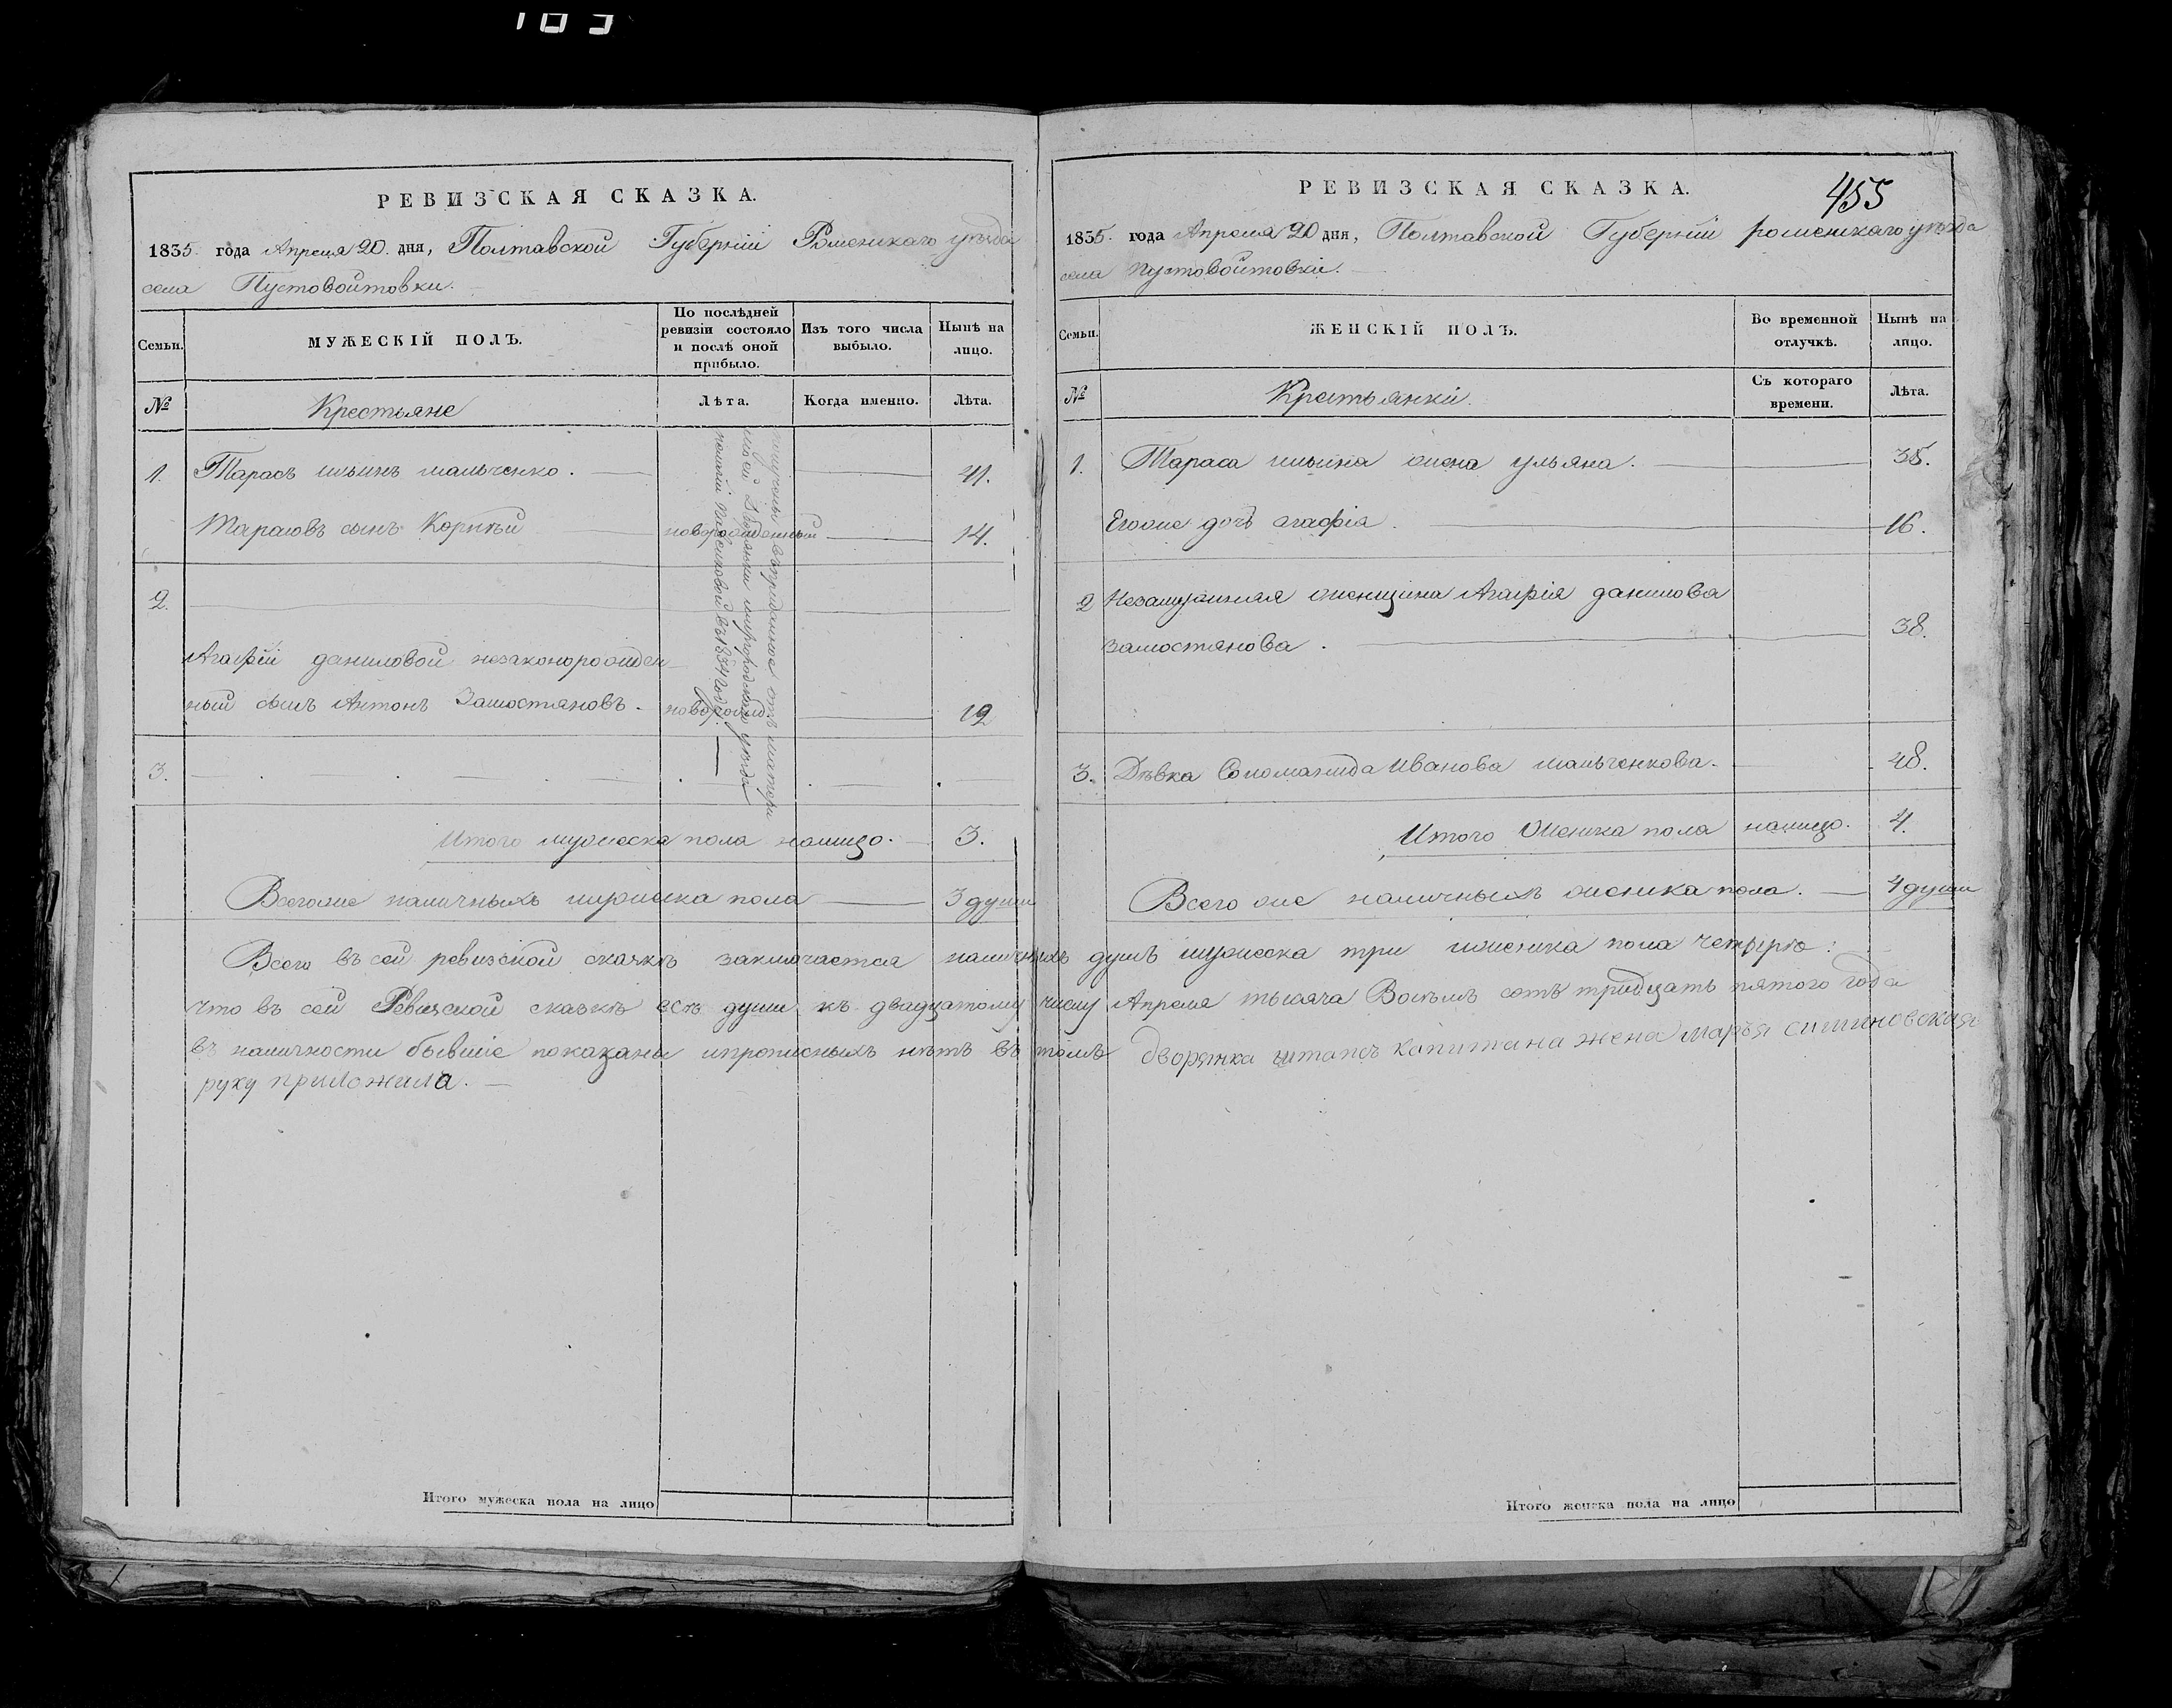 РЕВИЗСКАЯ СКАЗКА.
1835 года Апреля 20. дня, Полтавской Губерніи Роменскаго уѣзда
села Пустовойтовки.
Семьи.
МУЖЕСКІЙ ПОЛЪ.
По послѣдней
ревизіи состояло
и послѣ оной
прибыло.
Изъ того числа
выбыло.
Нынѣ на
лицо.
№
Крестьяне
Лѣта.
Когда именно.
Лѣта.
1. Тарасъ ильинъ мальченко. 41.
Тарасовъ сынъ Корнѣй новорожденный 14.
2.
Агафіи даниловой незаконорожден
ный сынъ Антонъ Замостяновъ. новорожд. 12
3.
получены въ приданное отъ матери
моей Дворянки миргородского уѣзда
въ 1834 году.
Итого мужеска пола налицо. 3.
Всегоже наличныхъ мужеска пола 3 души
РЕВИЗСКАЯ СКАЗКА.
455
1835. года Апреля 20 дня, Полтавской Губерніи роменскаго уѣзда
села пустовойтовки.
Семьи.
ЖЕНСКІЙ ПОЛЪ.
Во временной
отлучкѣ.
Нынѣ на
лицо.
№
Крестьянки.
Съ котораго
времени.
Лѣта.
1. Тараса ильина жена ульяна. 38.
Егоже дочь агафія. 16.
2 Незамужняя женщина Агафія данилова
замостянова. 38.
3. Дѣвка Соломанида Иванова мальченкова. 48.
Итого Женска пола налицо. 4.
Всего же наличныхъ женска пола. 4 души
Всего въ сей ревизской сказкѣ заключается наличныхъ душъ мужеска три иженска пола четыре:
что въ сей Ревизской сказкѣ всѣ души къ двадцатому числу Апреля тысяча Восемъ сотъ тридцать пятого года
въ наличности бывшіе показаны ипрописныхъ нѣтъ въ томъ дворянка штапсъ капитана жена марья симиновская
руку приложила.
Итого мужеска пола на лицо
Итого женска пола на лицо